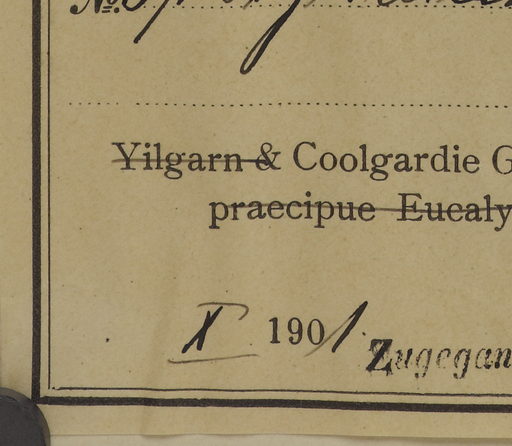 No.
Yilgarn & Coolgardie G
praecipue Eucaly
X 1901.
Zugegan